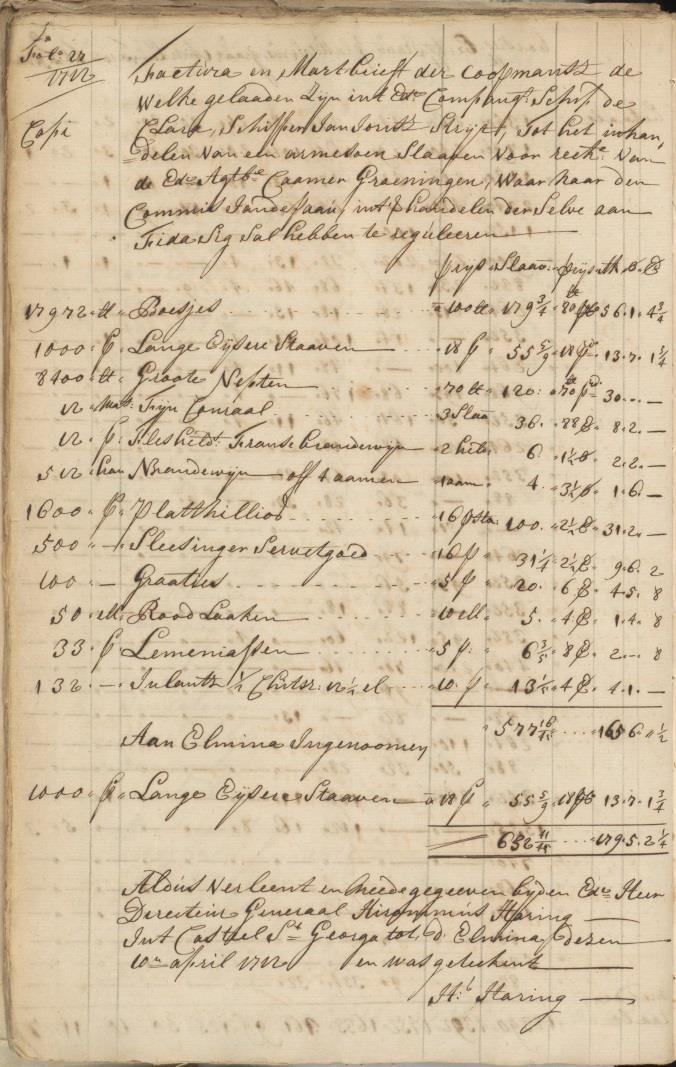 Fol. 27
1712
Copi
Factura en Markbrieff der Coopmants. de
Welke gelaaden Zijn int Ede. Compangs. Schip de
Clara, Schipper Jan Strijt, tot het inhan,
delen van een armesoen Slaaven voor reeke. van
de Ede. Agtbe. Caamer Groeningen, Waar naar den
Commis Jan de Paau, int handelen der Selve aan
Fida Sig Sal hebben te reguleeren
prijs Slaav. prijs
17972 tt Boesjes 100 tt 179¾ 80 56.1.4¾
1000 p. Lange Eijsere Staaven 18 p 55 5/9 18 13.7.1¼
8400 tt Groote Nepten 70 tt 120 70 30. . —
12 Mas. Fijn Conraal 3 Slaa 36. 88. 8.2.—
12 p. Fleskelds. Franse brandewijn 2 kels. 6. 1½ 2.2.—
512 kan Brandewijn off 4 aamen 1 aam 4. 3½ 1.6.—
1600 p. Platthillios 16 p 100. 2½ 31.2.—
500 — Sleesinger Servetgoed 16 p 31¼ 2½ 9.6.2
100 — Graaties 5 p 20. 6 4.5.8
50 ell Rood Laaken 10 ell 5. 4 1.4.8
33 p Lemeniassen 5 p. 6 3/5 8 2.—.8
132 — Inlants ½ Chits. 12½ el 10 p 13 1/5 4 4.1.—
577 165 6
Aan Elmina Ingenoomen
1000 p Lange Eijsere Staaven 18 p 55 5/9 18 13.7.1¾
632 179.5.2¼
Aldus Verleent en meede gegeeven bij den Ede. Heer
Directeur Generaal Hieronimus Haring
Int Casteel St. George d Elmina dezen
10en april 1712 en was geteekent
H: Haring